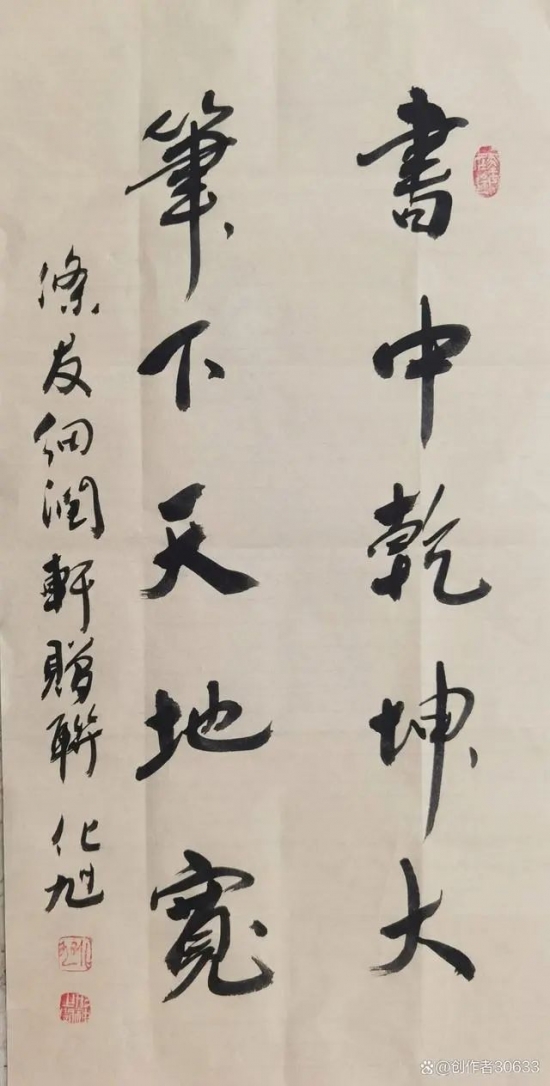 書中乾坤大
筆下天地寬
條友細潤軒贈聯 化旭
@创作者30633